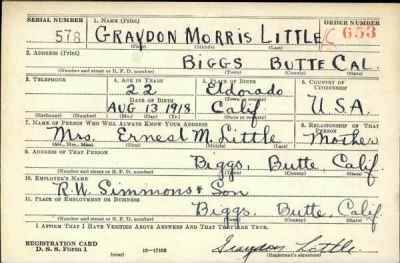 SERIAL NUMBER 1. NAME (Print) ORDER NUMBER
578 GRAYDON MORRIS LITTLE 653
(First) (Middle) (Last)
2. ADDRESS (Print)
BIGGS BUTTE CAL.
(Number and street or R. F. D. number) (Town) (County) (State)
3. TELEPHONE 4. AGE IN YEARS 5. PLACE OF BIRTH 6. COUNTRY OF CITIZENSHIP
22 Eldorado
DATE OF BIRTH (Town or county)
AUG 13 1918 Calif U.S.A.
(Exchange) (Number) (Mo.) (Day) (Yr.) (State or country)
7. NAME OF PERSON WHO WILL ALWAYS KNOW YOUR ADDRESS 8. RELATIONSHIP OF THAT PERSON
Mrs. Ernest M. Little Mother
(Mr., Mrs., Miss) (First) (Middle) (Last)
9. ADDRESS OF THAT PERSON
Biggs, Butte, Calif.
(Number and street or R. F. D. number) (Town) (County) (State)
10. EMPLOYER'S NAME
R.W. Simmons & Son
11. PLACE OF EMPLOYMENT OR BUSINESS
Biggs, Butte, Calif.
(Number and street or R. F. D. number) (Town) (County) (State)
I AFFIRM THAT I HAVE VERIFIED ABOVE ANSWERS AND THAT THEY ARE TRUE.
REGISTRATION CARD
D. S. S. Form 1 (over) 16—17105 Graydon Little
(Registrant's signature)